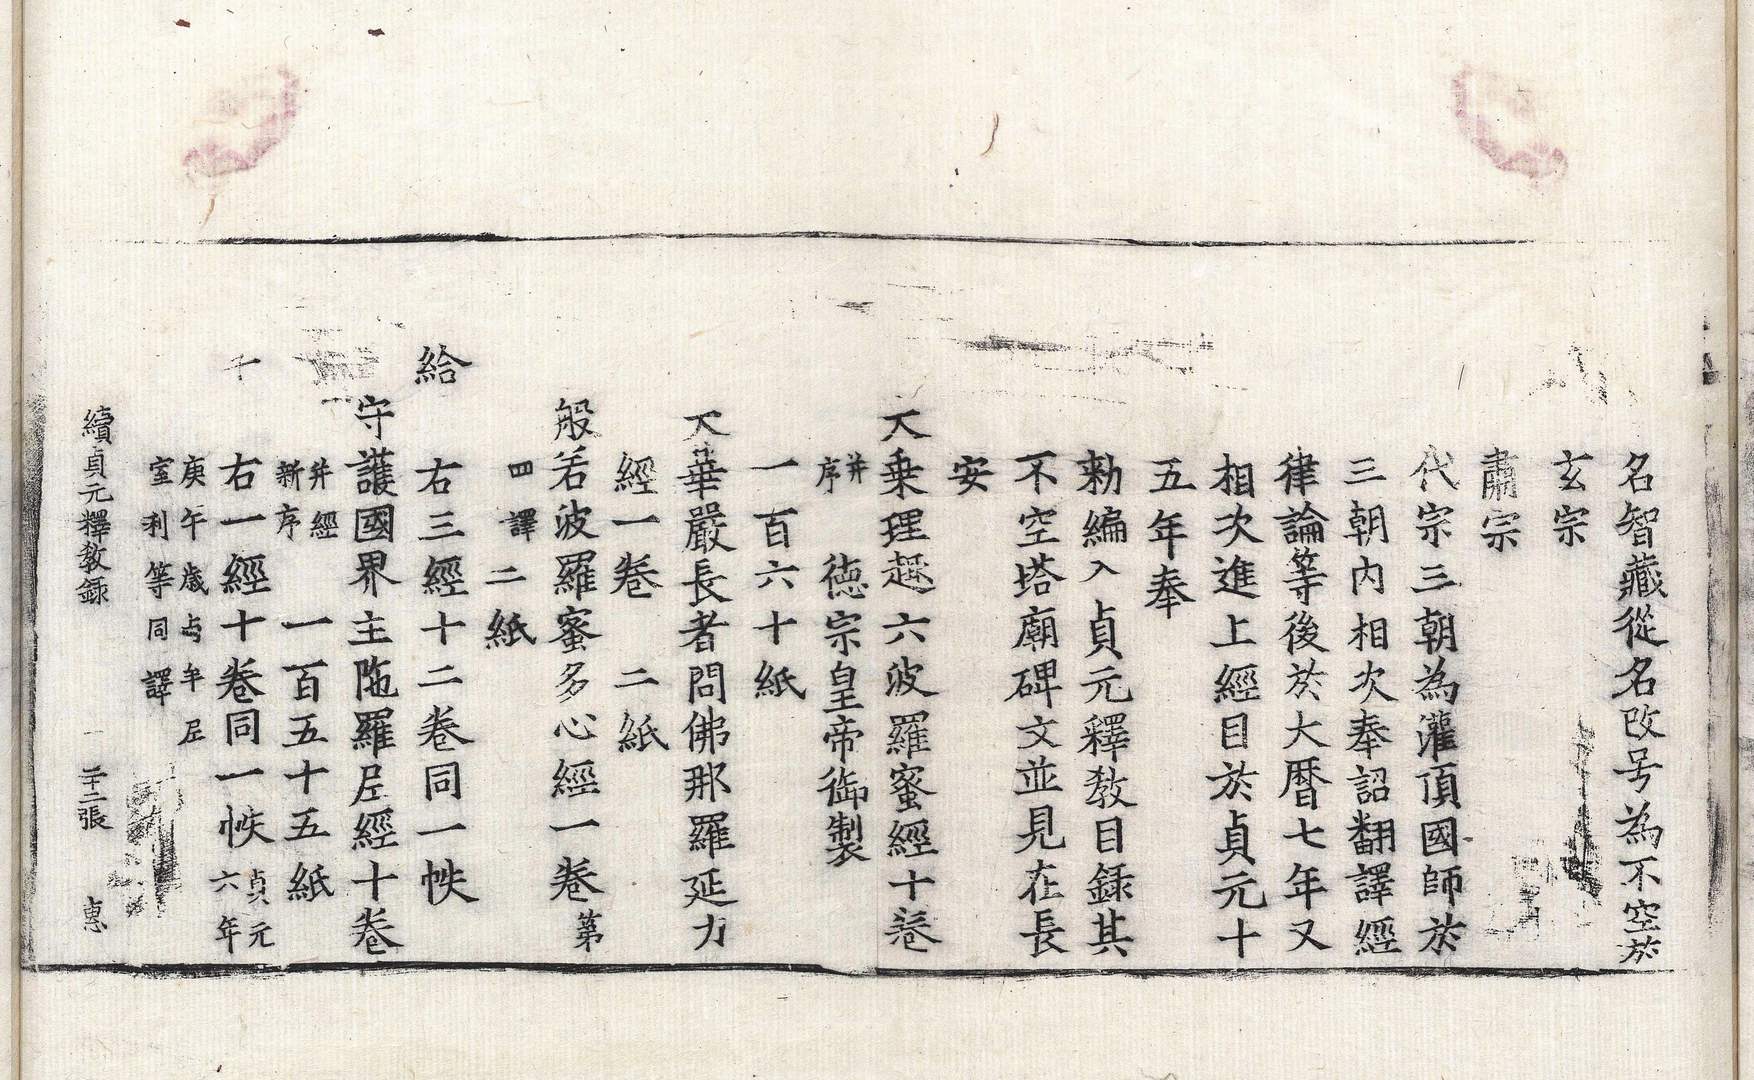 名智藏從名改号為不空於
玄宗
肅宗
代宗三朝為灌頂國師於
三朝內相次奉詔翻譯經
律論等後於大曆七年又
相次進上經目於貞元十
五年奉
勑編入貞元釋教目錄其
不空塔廟碑文並見在長
安
大乗理趣六波羅蜜經十卷
并序 德宗皇帝御製
一百六十紙
大華嚴長者問佛那羅延力
經一卷 二紙
般若波羅蜜多心經一卷第
四譯 二紙
給 右三經十二卷同一帙
守護國界主陁羅尼經十卷
并經新序 一百五十五紙
千 右一經十卷同一帙貞元六年
庚午歲 牟尼室利等同譯
續貞元釋教録 二十二張 惠